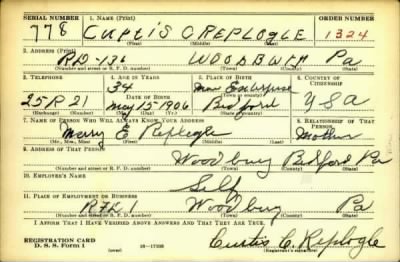 SERIAL NUMBER 1. NAME (Print) ORDER NUMBER
778 CURTIS C REPLOGLE 1324
(First) (Middle) (Last)
2. ADDRESS (Print)
RD-136 WOODBURY Pa
(Number and street or R. F. D. number) (Town) (County) (State)
3. TELEPHONE 4. AGE IN YEARS 5. PLACE OF BIRTH 6. COUNTRY OF CITIZENSHIP
34 New Enterprise
DATE OF BIRTH (Town or county)
25 R 21 May 15-1906 Bedford USA
(Exchange) (Number) (Mo.) (Day) (Yr.) (State or country)
7. NAME OF PERSON WHO WILL ALWAYS KNOW YOUR ADDRESS 8. RELATIONSHIP OF THAT PERSON
Mary E Replogle Mother
(Mr., Mrs., Miss) (First) (Middle) (Last)
9. ADDRESS OF THAT PERSON
Woodbury Bedford Pa
(Number and street or R. F. D. number) (Town) (County) (State)
10. EMPLOYER'S NAME
Self
11. PLACE OF EMPLOYMENT OR BUSINESS
RFD 1 Woodbury Pa
(Number and street or R. F. D. number) (Town) (County) (State)
I AFFIRM THAT I HAVE VERIFIED ABOVE ANSWERS AND THAT THEY ARE TRUE.
REGISTRATION CARD
D. S. S. Form 1 Curtis C. Replogle
(Registrant's signature)